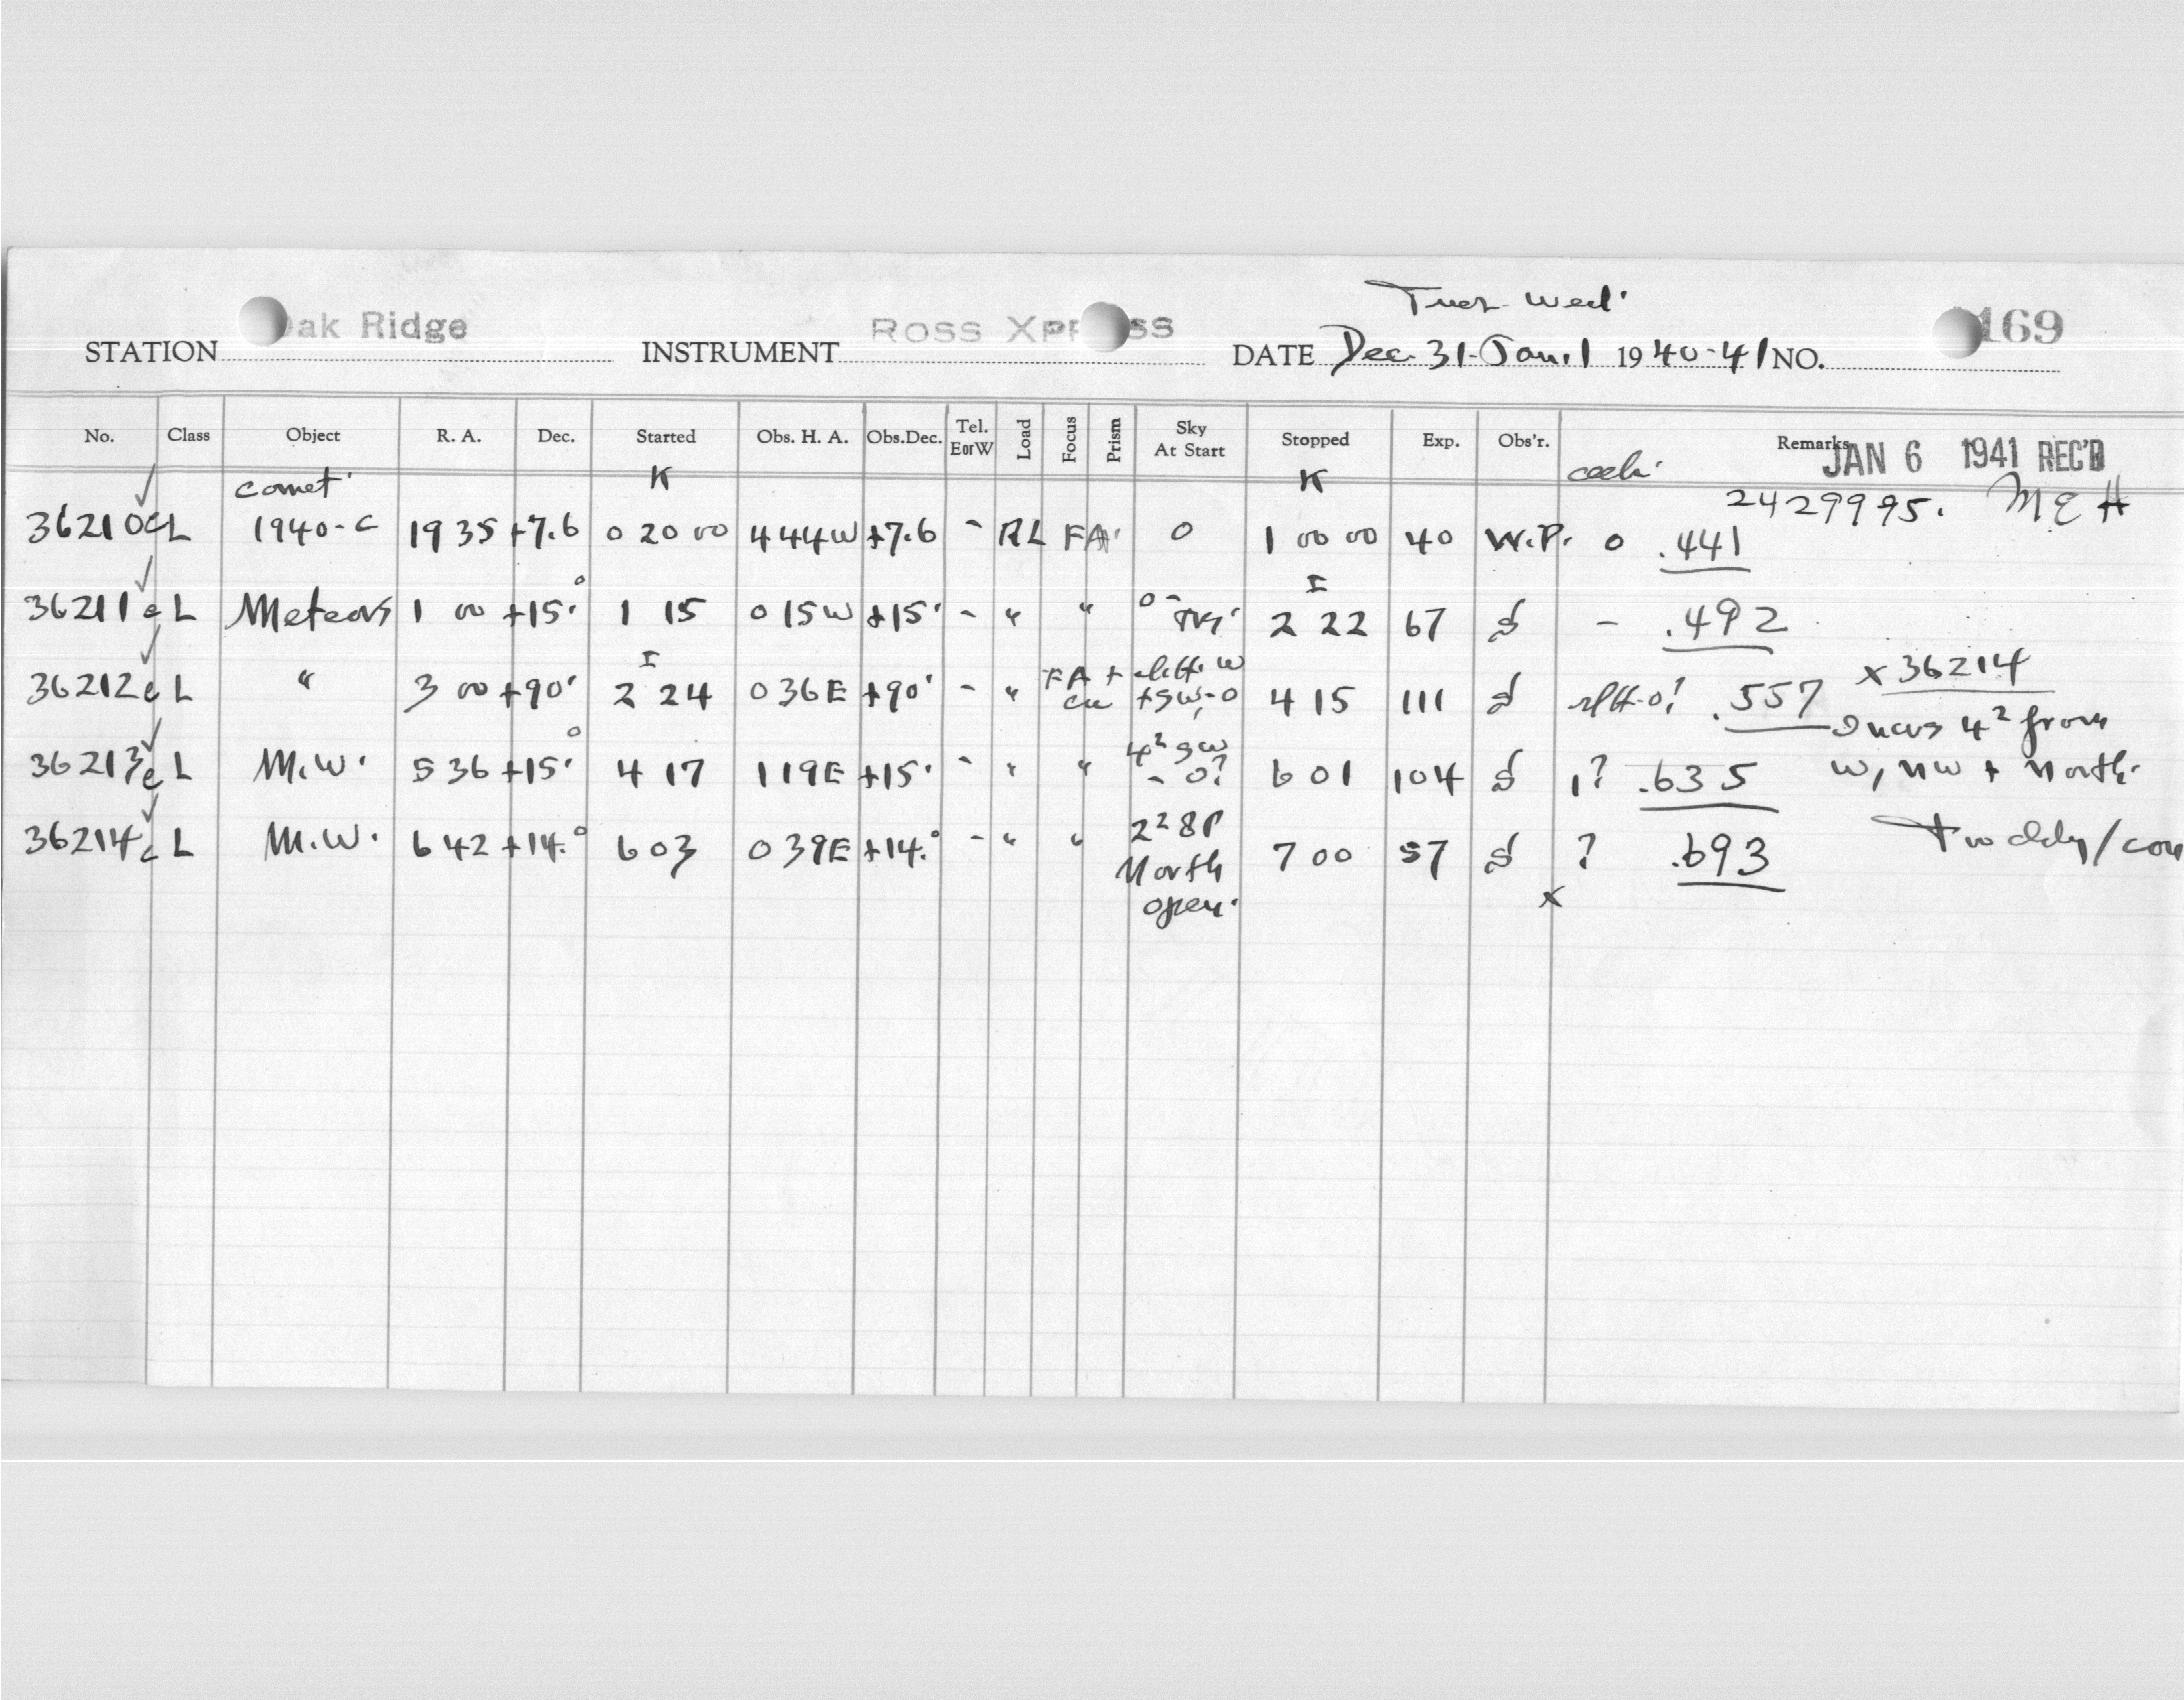 Tues-Wed.
STATION Oak Ridge INSTRUMENT ROSS XPRESS DATE Dec. 31-Jan. 1 1940-41 NO. 169
No. Class Object R. A. Dec. Started Obs. H. A. Obs.Dec. Tel. EorW Load Focus Prism Sky At Start Stopped Exp. Obs'r. Remarks JAN 6 1941 REC'D
comet K K 2429995. M E H
36210c L 1940-c 19 35 +7.6 0 20 00 4 44W +7.6 - RL FA 0 1 00 00 40 W.P. 0 .441
36211c L Meteors 1 00 +15.° 1 15 0 15W +15. - " " 0 - 2 22 67 - .492
36212c L " 3 00 +90. 2 24 0 36E +90. - " FA + W + SW, - 0 4 15 111 .557 x 36214
36213c L M.W. 5 36 +15.° 4 17 1 19E +15. - " " 4² SW - 0? 6 01 104 1? .635 4² from W, NW + North.
36214c L M.W. 6 42 +14.° 6 03 0 39E +14.° - " " 2² 8P North open. 7 00 57 ? .693
x